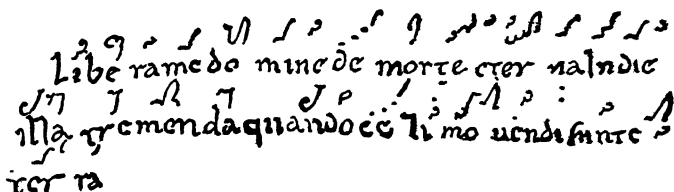 Libe ramedo minede morte eter naIndie
illa tremenda quando ce li mo uendi sunte
ter ra